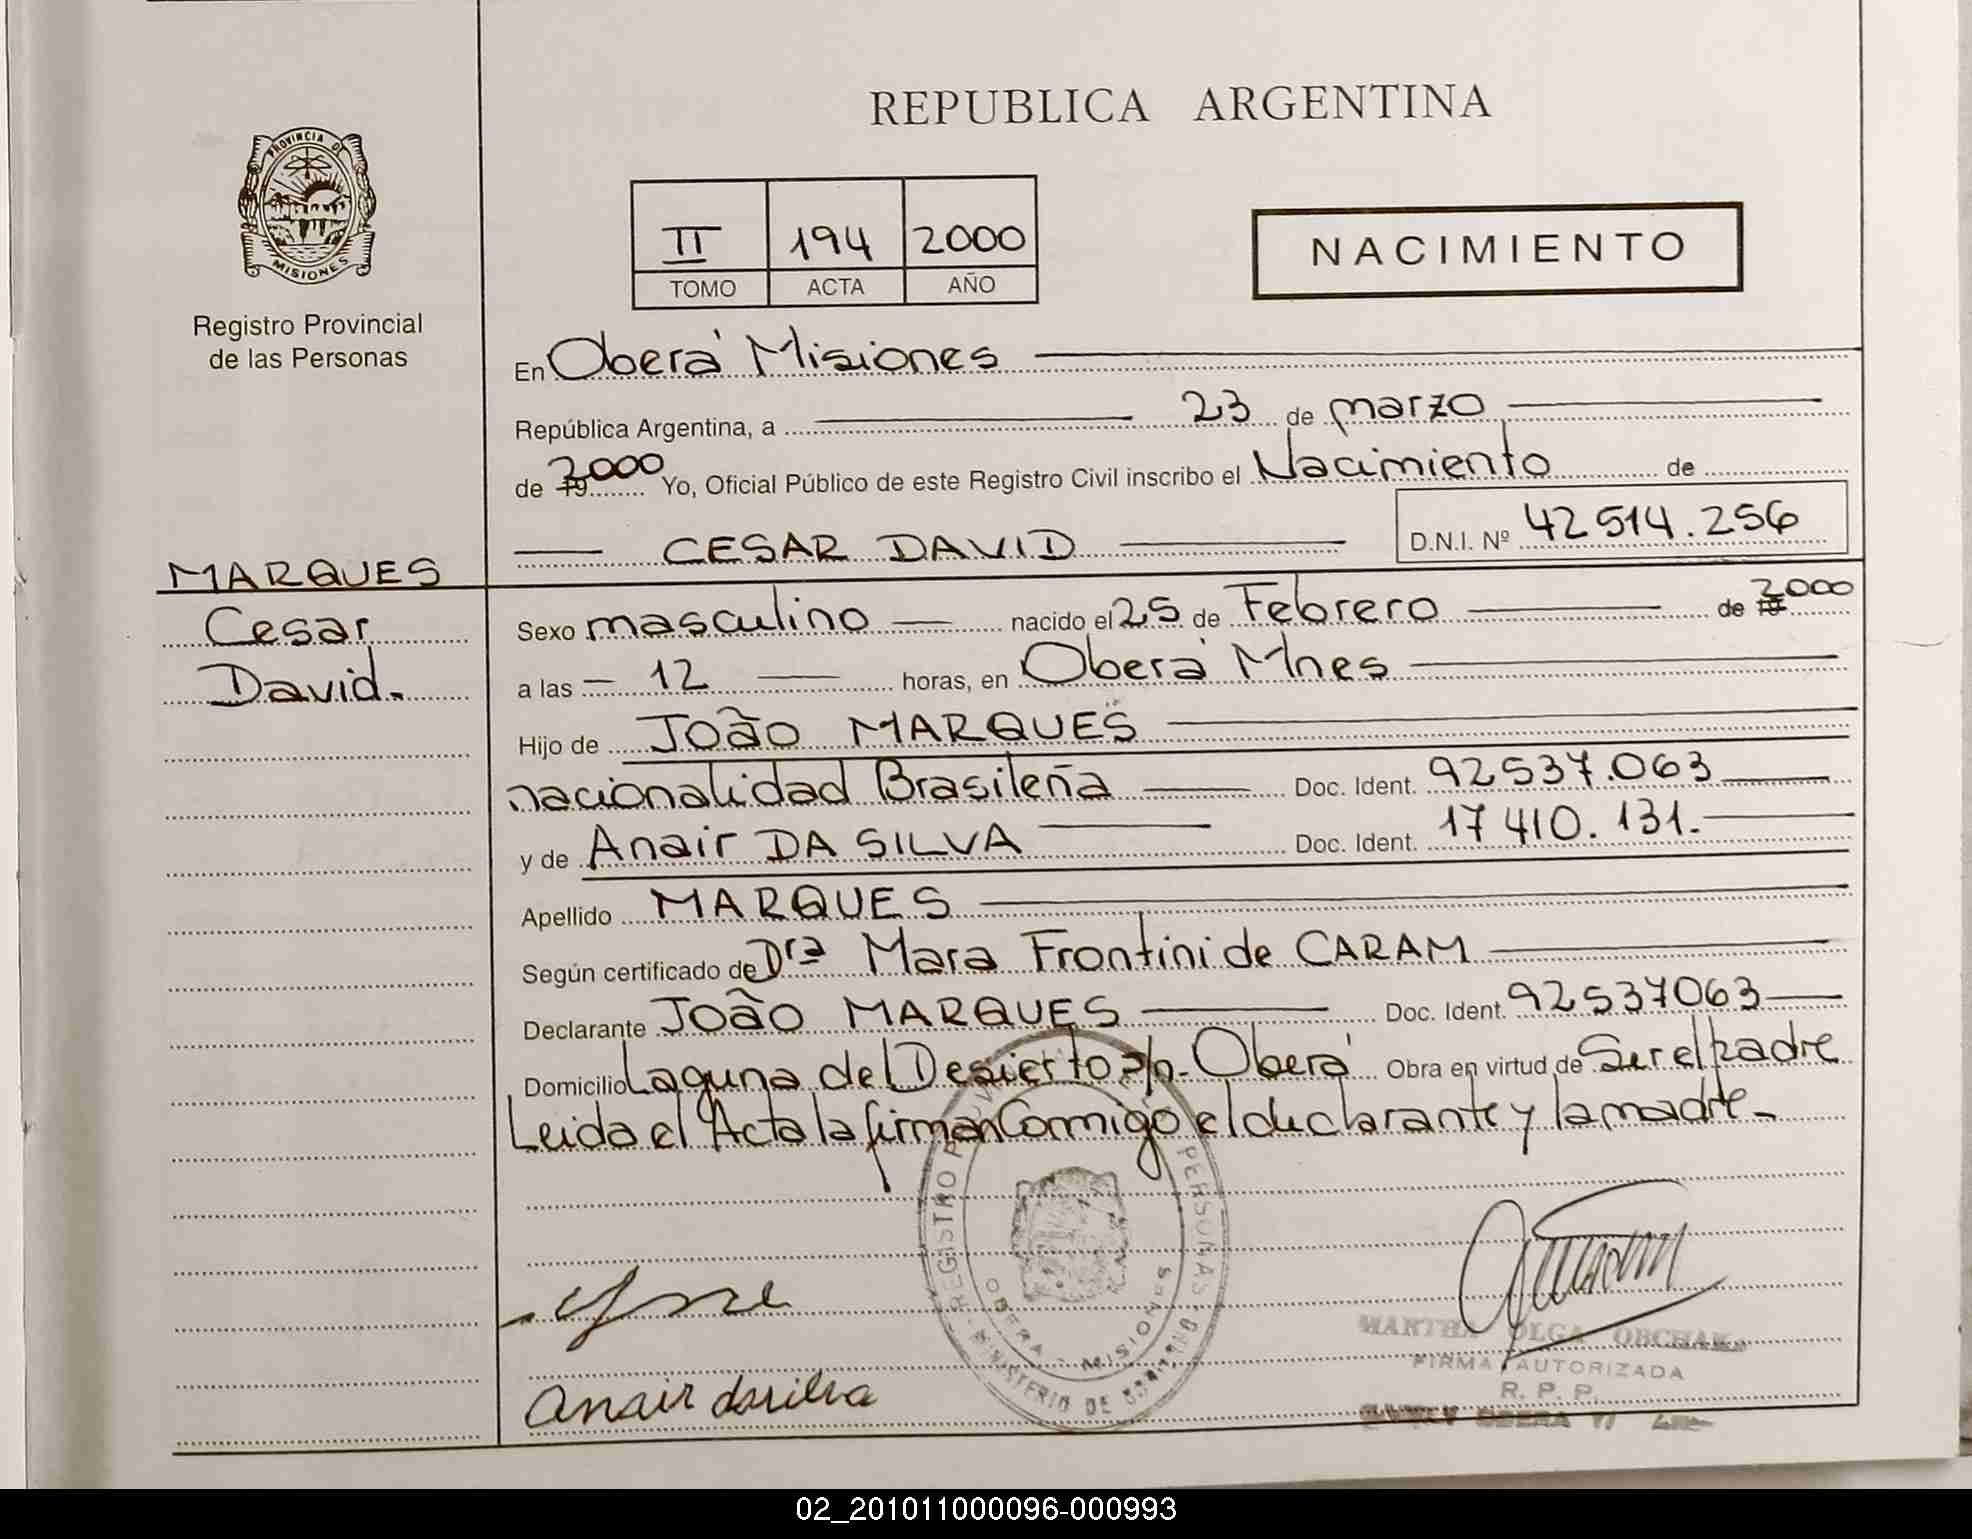 REPUBLICA ARGENTINA
PROVINCIA DE
MISIONES
Registro Provincial
de las Personas
II 194 2000
TOMO ACTA AÑO
NACIMIENTO
En Oberá Misiones
República Argentina, a 23 de marzo
de 19 2000 Yo, Oficial Público de este Registro Civil inscribo el Nacimiento de
CESAR DAVID D.N.I. Nº 42514.256
MARQUES
Cesar
David.
Sexo masculino nacido el 25 de Febrero de 19 2000
a las 12 horas, en Oberá Mnes
Hijo de João MARQUES
nacionalidad Brasileña Doc. Ident. 92537.063
y de Anair DA SILVA Doc. Ident. 17410.131.
Apellido MARQUES
Según certificado de Dra Mara Frontini de CARAM
Declarante João MARQUES Doc. Ident. 92537063
Domicilio Laguna del Desierto s/n. Oberá Obra en virtud de Ser el padre
Leida el Acta la firman Conmigo el declarante y la madre.
REGISTRO PERSONAS
OBERA - MISIONES
MINISTERIO DE
Anair dasilva
MARTHA OLGA
FIRMA AUTORIZADA
R. P. P.
OBERA
02_201011000096-000993